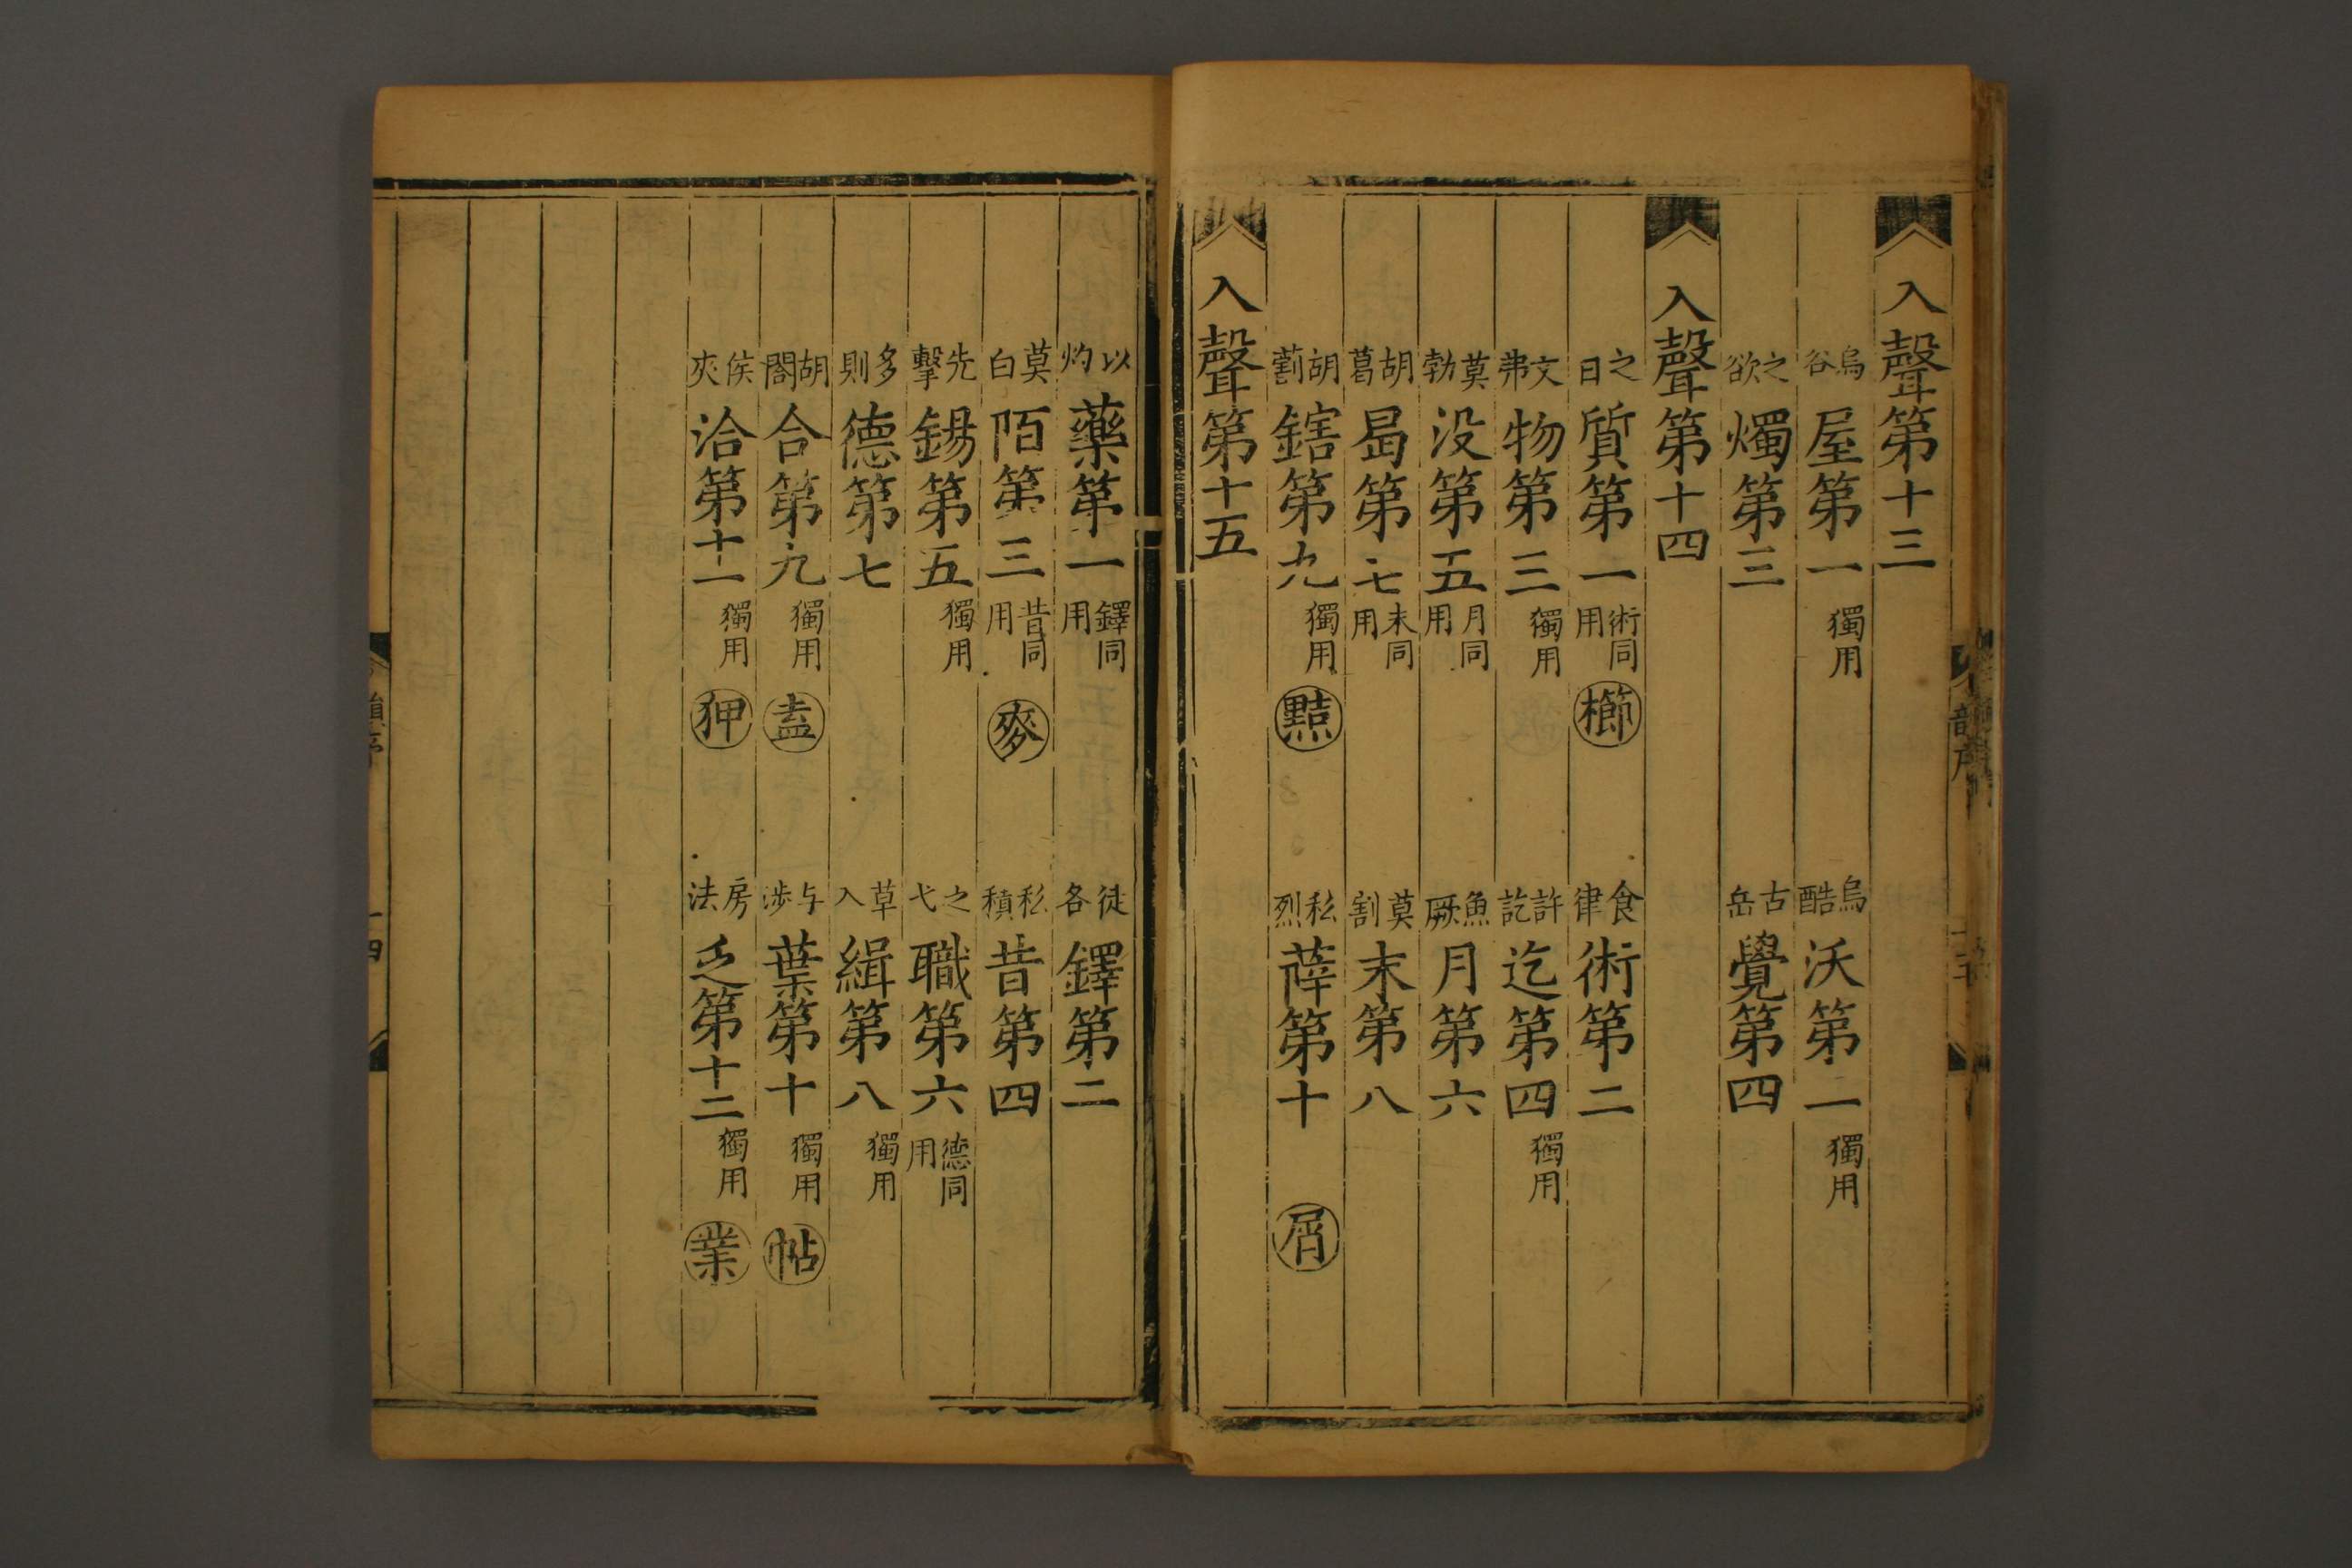 入聲第十三
烏谷屋第一獨用　烏酷沃第二獨用
之欲燭第三　古岳覺第四
入聲第十四
之日質第一術同用櫛　食律術第二
文弗物第三獨用　許訖迄第四獨用
莫勃没第五月同用　魚厥月第六
胡葛曷第七末同用　莫割末第八
胡䓶鎋第九獨用黠　私烈薛第十屑
入聲第十五
以灼藥第一鐸同用　徒各鐸第二
莫白陌第三昔同用麥　私積昔第四
先擊錫第五獨用　之弋職第六德同用
多則德第七　草入緝第八獨用
胡閤合第九獨用盍　与涉葉第十獨用帖
侯夾洽第十一獨用狎　房法乏第十二獨用業